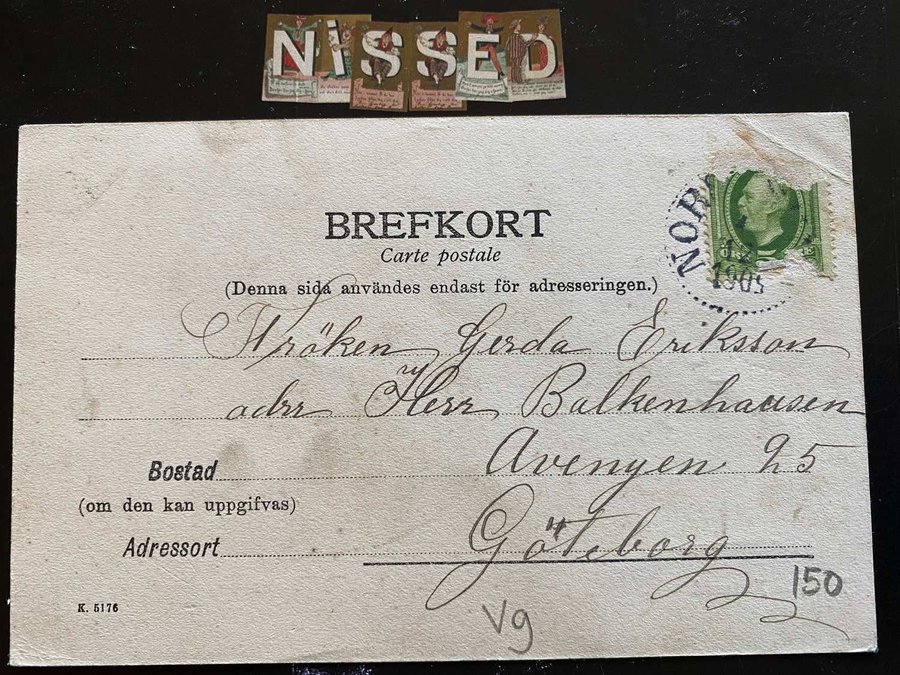 NiSSED
BREFKORT
Carte postale
(Denna sida användes endast för adresseringen.)
NOR
12
1905
Fröken Gerda Eriksson
adrr Herr Balkenhausen
Avenyen 25
Bostad
(om den kan uppgifvas)
Göteborg
Adressort
150
K. 5176
Vg